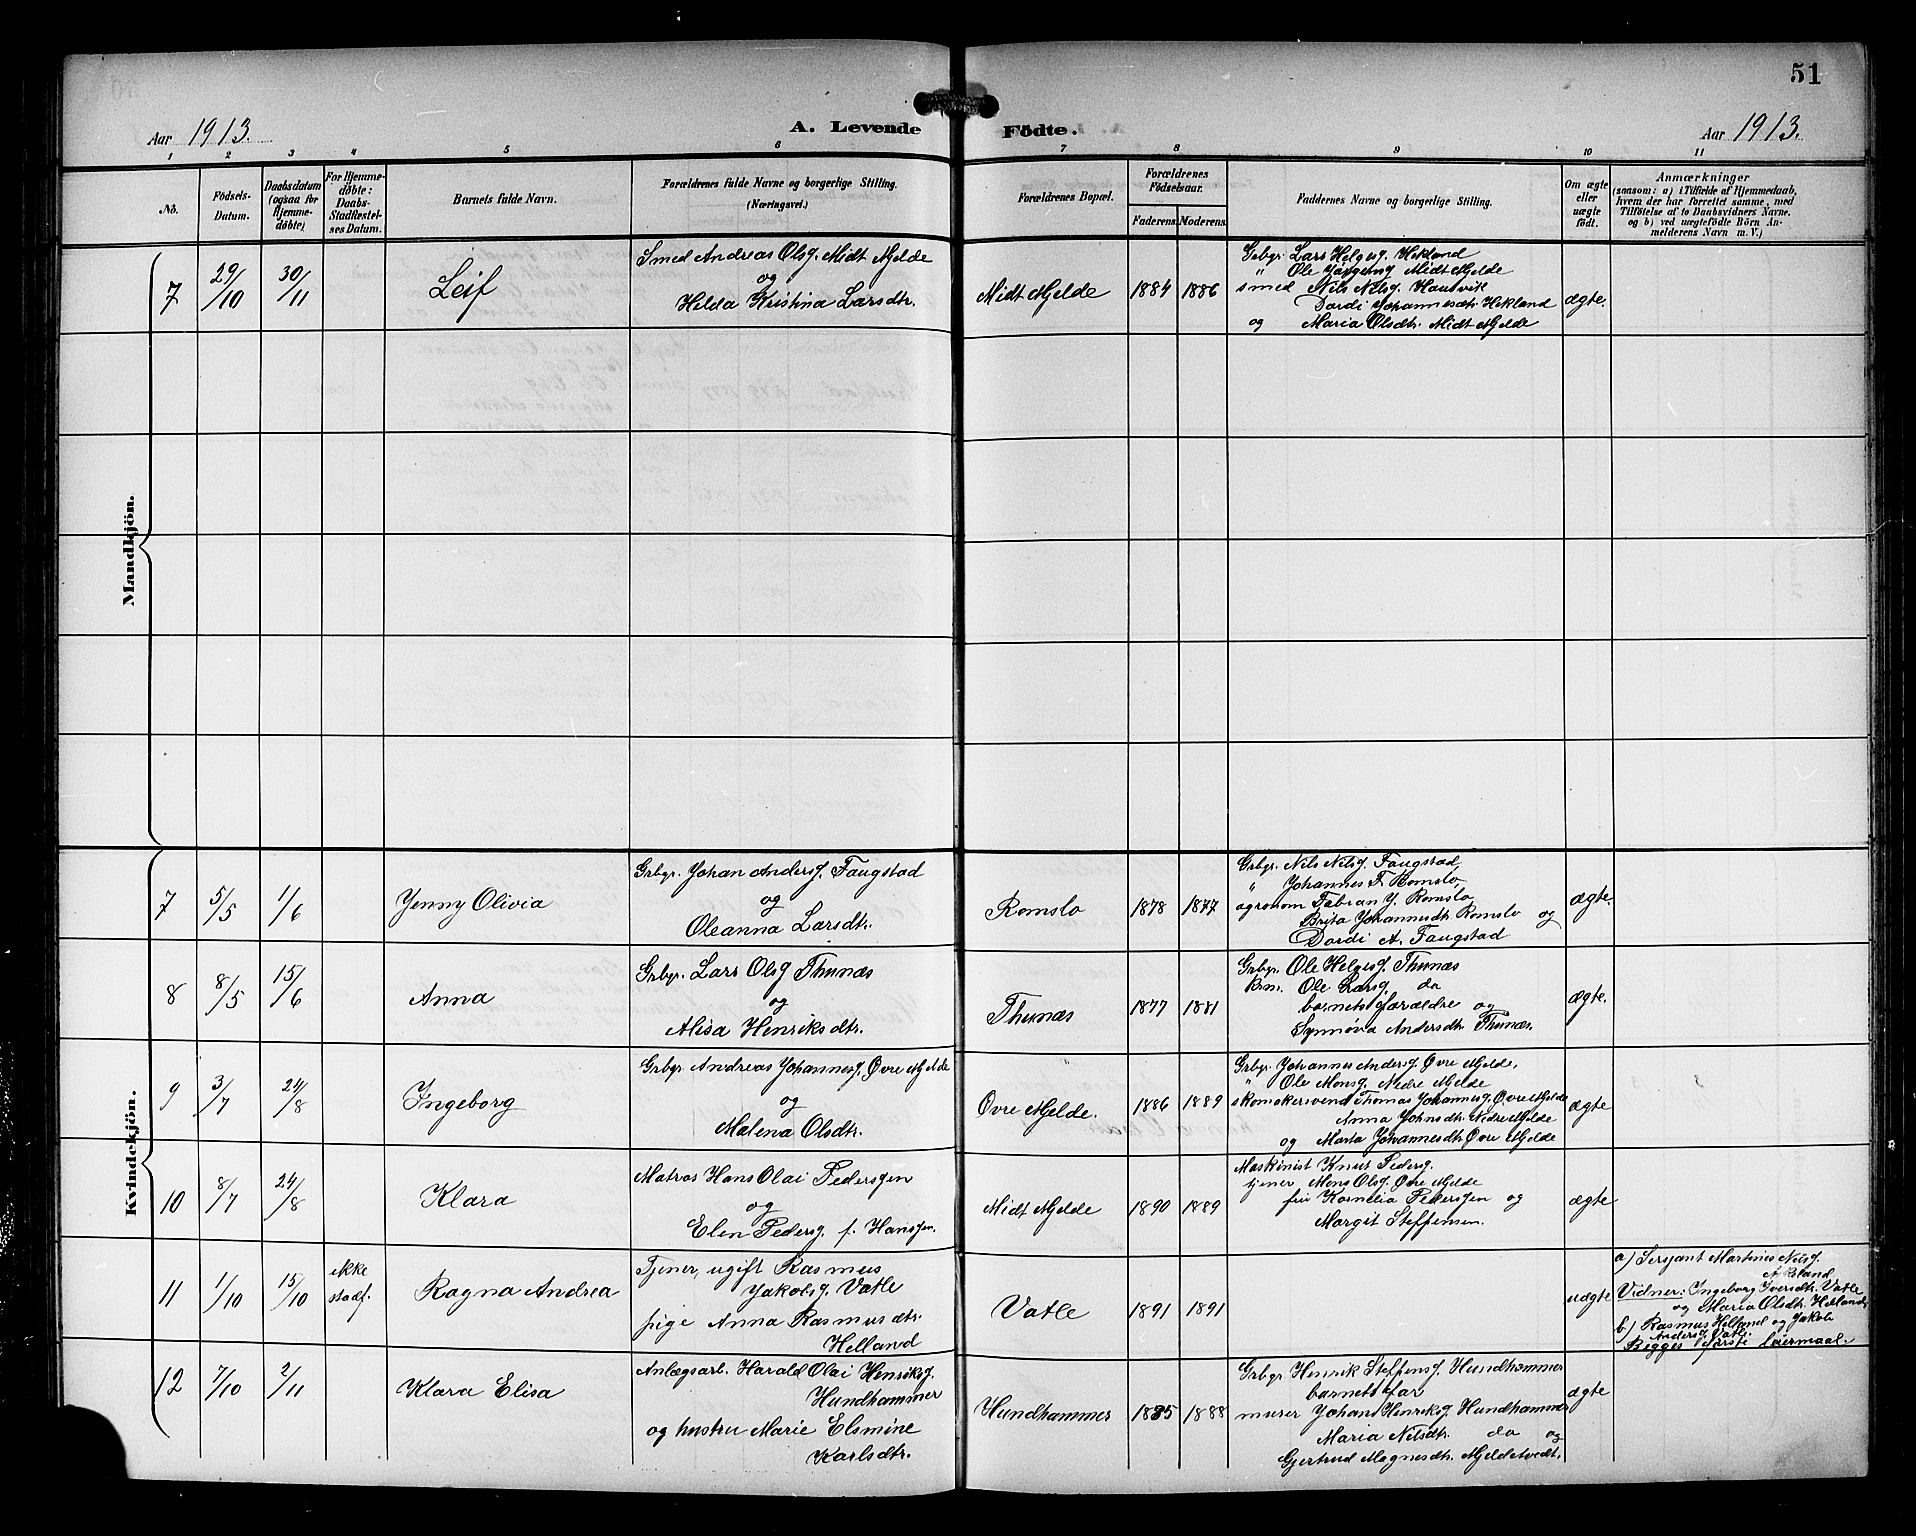 51
Aar 1913. A. Levende Fødte. Aar 1913.
1 2 3 4 5 6 7 8 9 10 11
No. Fødsels-Datum. Daabsdatum (ogsaa for Hjemmedøbte) For Hjemmedøbte: Daabs-Stadfestelses Datum. Barnets fulde Navn. Forældrenes fulde Navne og borgerlige Stilling. (Næringsvei.) Forældrenes Bopæl. Forældrenes Fødselsaar. Faderens. Moderens. Faddernes Navne og borgerlige Stilling. Om ægte eller uægte født. Anmærkninger
(saasom: a) i Tilfælde af Hjemmedaab,
hvem der har forrettet samme, med
Tilføielse af to Daabsvidners Navne.
og b) ved uægtefødte Børn Anmelderens Navn m. V.)
Mandkjøn.
7 29/10 30/11 Leif
Smed Andreas Olsg. Midt Mjelde
og
Helda Kristina Larsdtr.
Midt Mjelde 1884 1886
Grbgr. Lars Helgesg. Hekland
" Ole Jørgensg Midt Mjelde
smed Nils Nilsg. Haugvik
Dordi Johannesdtr. Hekland
og Maria Olsdtr. Midt Mjelde
ægte.
Kvindekjøn.
7 5/5 1/6 Jenny Olivia
Grbgr. Johan Andersg. Faugstad
og
Oleanna Larsdtr.
Romslo 1878 1877
Grbgr. Nils Nilsg. Faugstad
" Johannes F. Romslo,
agronom Fabian J. Romslo,
Brita Johannesdtr. Romslo og
Dordi A. Faugstad
ægte.
8 8/5 15/6 Anna
Grbgr. Lars Olsg Thunæs
og
Alisa Henriksdtr.
Thunæs 1877 1881
Grbgr. Ole Helgesg. Thunæs
Ole Larsg. do
barnets forældre og
Synnøva Andersdtr. Thunæs.
ægte.
9 3/7 24/8 Ingeborg
Grbgr Andreas Johannesg. Øvre Mjelde
og
Malena Olsdtr.
Øvre Mjelde. 1886 1889
Grbgr. Johannes Andersg. Øvre Mjelde,
" Ole Monsg. Nedre Mjelde
skomakersvend Thomas Johannesg. Øvre Mjelde
Anna Johnsdtr. Nedre Mjelde
og Marta Johannesdtr. Øvre Mjelde
ægte
10 8/7 24/8 Klara
Matros Hans Olai Pedersgen
og
Elen Pedersg f. Hansgen.
Midt Mjelde 1890 1889
Maskinist Knut Pedersg.
tjener Mons Olsg. Øvre Mjelde
fru Kornelia Pedersgen og
Margit Steffensen.
ægte
11 1/10 15/10 ikke stadf. Ragna Andrea
Tjener, ugift Rasmus
Jakobsg. Vatle
pige Anna Rasmusdtr.
Helland
Vatle 1891 1891
uægte
a) Sersjant Martines Nilsg.
Vidner: Ingeborg Iversdtr. Vatle
og Maria Olsdtr. Helland,
b) Rasmus Helland og Jakob
Andersg. Vatle
Begges første Leiermaal.
12 7/10 2/11 Klara Elisa
Anlægsarb. Harald Olai Henriksg.
Hundhammer
og hustru Marie Elsmine
Karlsdtr.
Hundhammer 1885 1888
Grbgr. Henrik Steffensg. Hundhammer
barnets far
murer Johan Henriksg. Hundhammer
Maria Nilsdtr. do og
Gjertrud Magnesdtr. Mjeldetvedt.
ægte